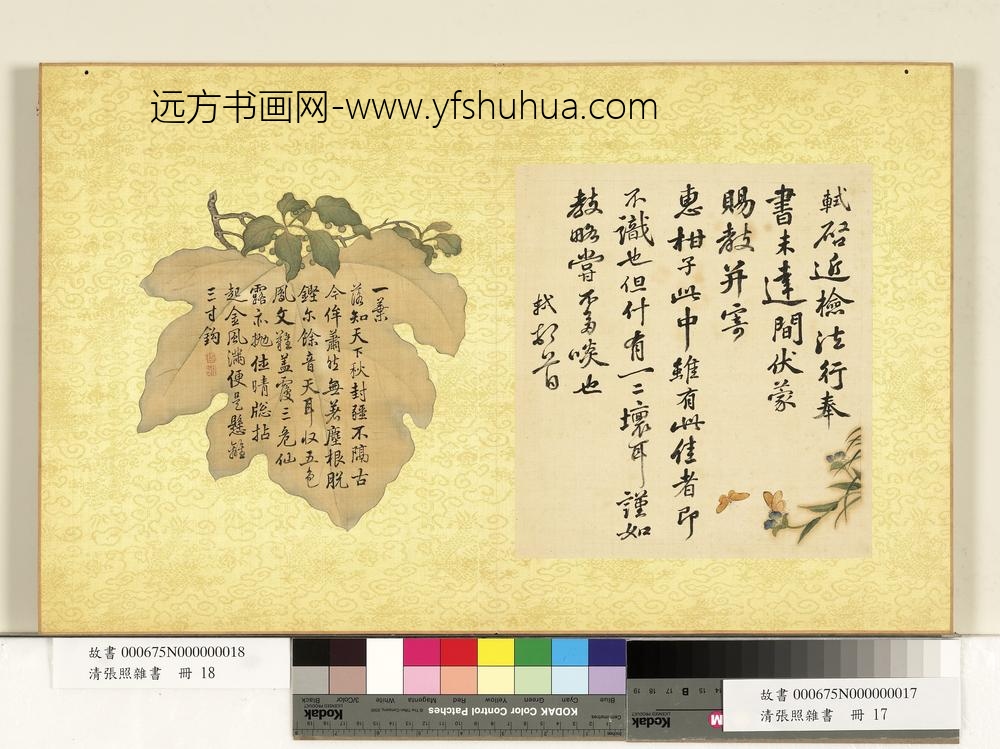 远方书画网-www.yfshuhua.com
軾啓近檢法行奉
書未達間伏蒙
賜教并寄
惠柑子此中雖有此佳者即
不識也但什有一二壞耳謹如
教略嘗不多啖也
軾頓首
一葉
落知天下秋封疆不隔古
今侔蕭然無著塵根脫
鏗尔餘音天耳收五色
鳳文難蓋覆三危仙
露亦拋住晴窓拈
起金風滿便是懸
三寸鈎
故書 000675N000000018
清張照雜書 冊 18
故書 000675N000000017
清張照雜書 冊 17
Black
3/Color
White
Magenta
Red
Yellow
Green
Cyan
Blue
Kodak
LICENSED PRODUCT
KODAK Color Control Patches
Centimetres
Kodak
LICENSED PRODUCT
19 18 17 B 15 14
M